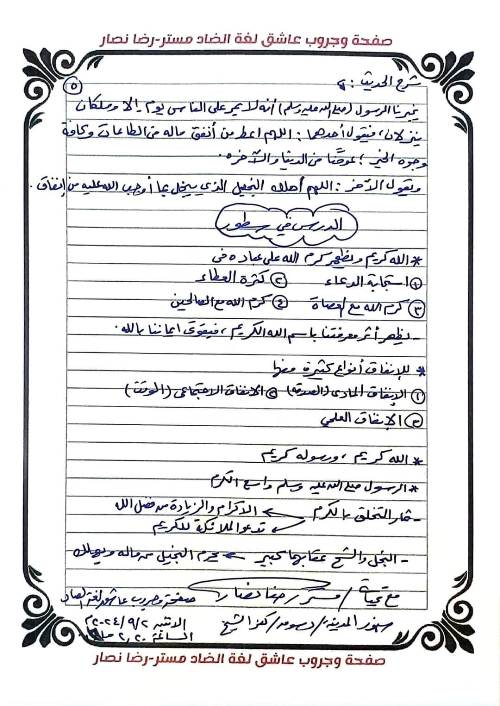 صفحة وجروب عاشق لغة الضاد مستر-رضا نصار
٥
شرح الحديث :
يخبرنا الرسول (صلى الله عليه وسلم) أنه لا يمر على الناس يوم إلا وملكان
ينزلان، فيقول أحدهما : اللهم اعط من أنفق ماله في الطاعات وكافة
وجوه الخير ؛ عوضًا من الدنيا والآخرة .
ويقول الآخر : اللهم أهلك البخيل الذي يبخل بما أوجب الله عليه من إنفاق .
الدرس في سطور
* الله كريم ويظهر كرم الله على عباده في
١ استجابة الدعاء ٢ كثرة العطاء
٣ كرم الله مع العصاة ٤ كرم الله مع الصالحين
- يظهر أثر معرفتنا باسم الله الكريم ، فيقوى إيماننا بالله .
* للإنفاق أنواع كثيرة منها
١ الإنفاق المادى (الصدقة) ٢ الإنفاق الاجتماعى (الوقت)
٣ الإنفاق العلمي
* الله كريم ، ورسوله كريم
* الرسول صلى الله عليه وسلم واسع الكرم
- ثمار التخلق بالكرم ← الإكرام والزيادة من فضل الله
← تدعو الملائكة للكريم
- البخل والشح عقابها كبير ← يحرم البخيل من ماله ويهلك
مع تحيات / مستر / رضا نصار صفحة وجروب عاشق لغة الضاد
دسوق / كفر الشيخ الاثنين ٢٠٢٤/٩/٢م
الساعة ٢,٢٠
صفحة وجروب عاشق لغة الضاد مستر-رضا نصار